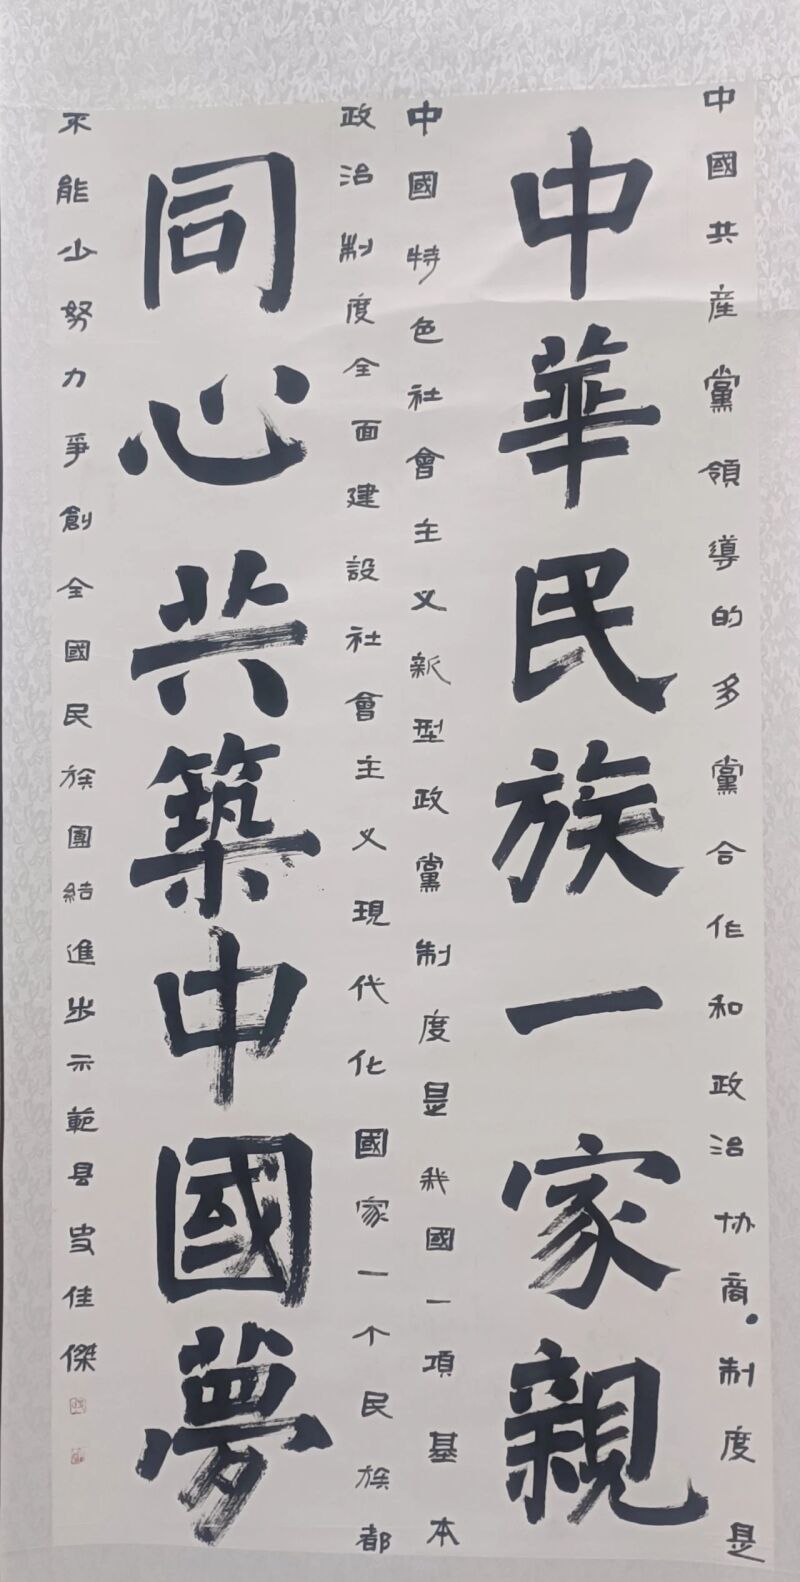 中國共産黨領導的多黨合作和政治协商制度是
中華民族一家親
中國特色社會主义新型政黨制度是我國一項基本
政治制度全面建設社會主义現代化國家一个民族都
同心共築中國夢
不能少努力爭創全國民族團結進步示範县史佳傑